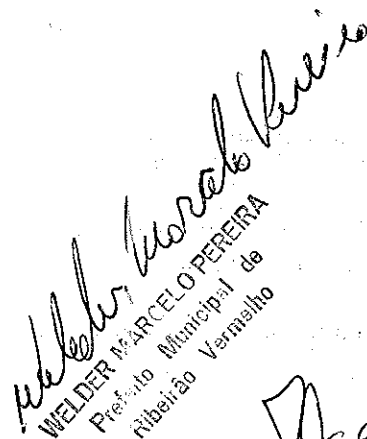 Welder Marcelo Pereira
WELDER MARCELO PEREIRA
Prefeito Municipal de
Ribeirão Vermelho